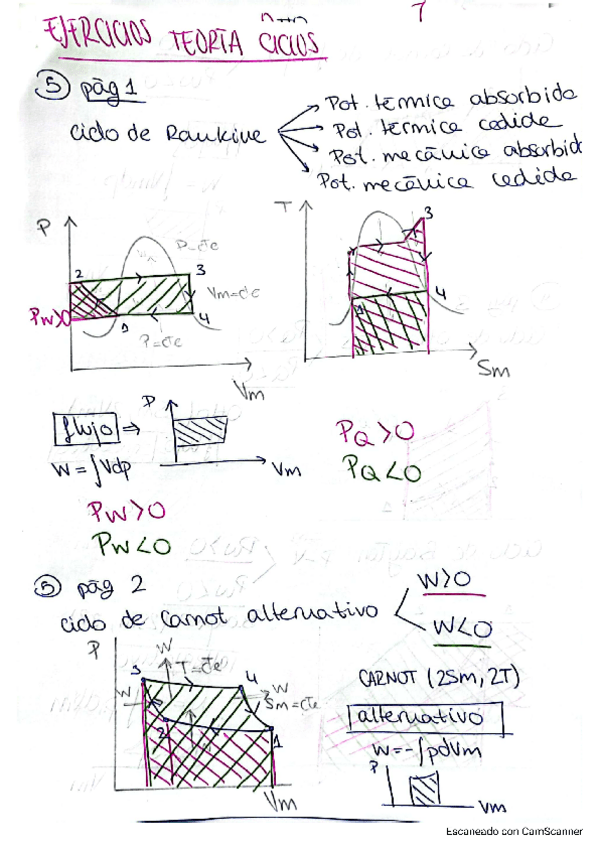 7
EJERCICIOS TEORÍA CICLOS
⑤ pág 1
ciclo de Rankine
Pot. térmica absorbida
Pot. térmica cedida
Pot. mecánica absorbid
Pot. mecánica cedida
P
2
3
P=cte
Vm=cte
Pw>0
1
4
P=cte
Vm
T
3
4
1
Sm
flujo ⇒
P
Vm
W = ∫Vdp
PQ>0
PQ<0
Pw>0
Pw<0
⑤ pág 2
ciclo de Carnot alternativo
W>0
W<0
P
3
W
T=cte
4
W
W
Sm=cte
2
1
Vm
CARNOT (2Sm, 2T)
alternativo
W=-∫pdVm
P
Vm
Escaneado con CamScanner